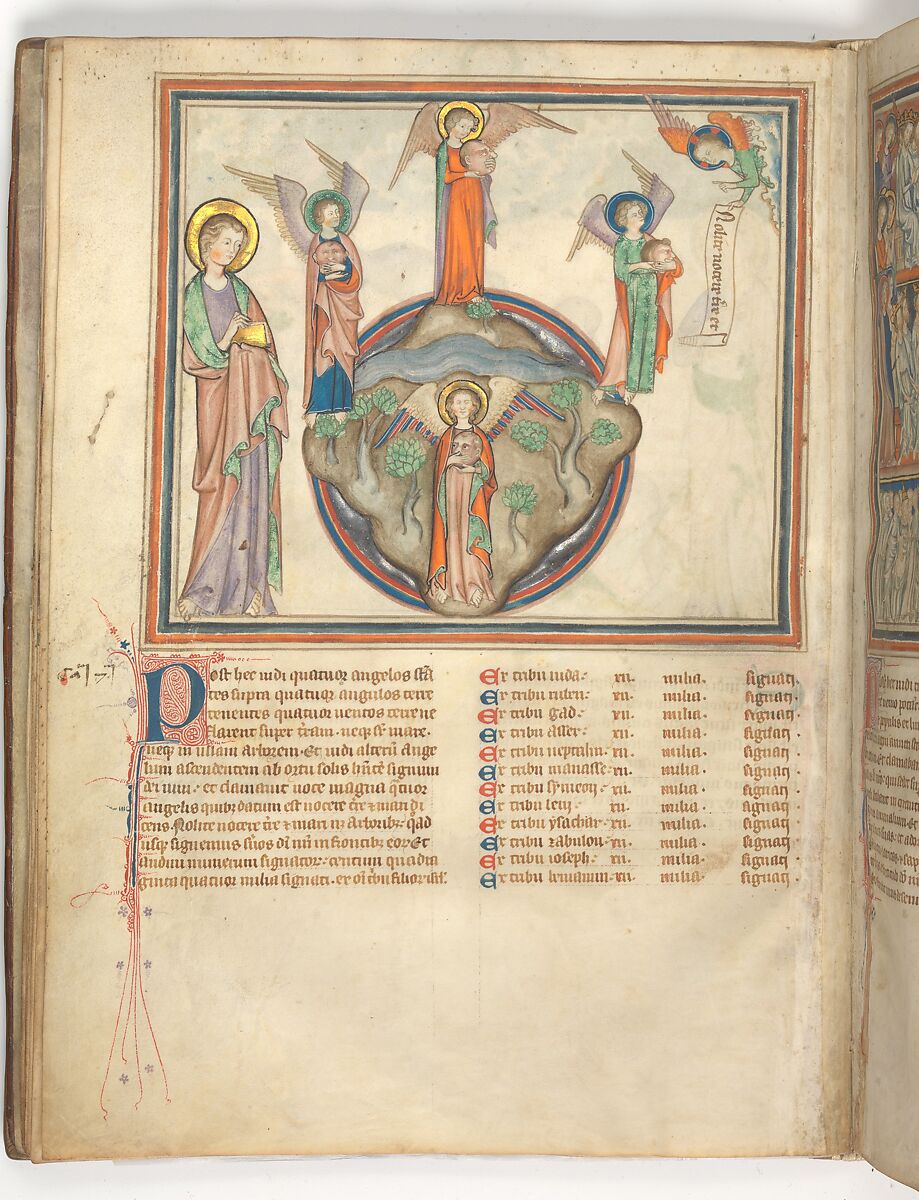 Nolite nocere tr̄e et
Post hec uidi quatuor angelos stā
tes supra quatuor angulos terre
tenentes quatuor uentos terre ne
flarent super tr̄am. neqꝫ sr̄ mare.
neqꝫ in ullam arborem. Et uidi alterū ange
lum ascendentem ab ortu solis hn̄tē signum
dei uiui. et clamauit uoce magna q̄tuor
angelis quibꝫ datum est nocere tr̄e ⁊ mari di
cens. Nolite nocere tr̄e ⁊ mari nꝫ arboribꝫ. q̄ad
usqꝫ signemus s̄uos dī nr̄i in frontibꝫ eoꝝ. Et
audiui numerum signatoꝝ. centum quadra
ginta quatuor milia signati. ex om̄i tribu filioꝝ isrl̄.
Ex tribu iuda. xii. milia. signati.
Ex tribu ruben. xii. milia. signati.
Ex tribu gad. xii. milia. signati.
Ex tribu asser. xii. milia. signati.
Ex tribu neptalin. xii. milia. signati.
Ex tribu manasse. xii. milia. signati.
Ex tribu symeon. xii. milia. signati.
Ex tribu leui. xii. milia. signati.
Ex tribu ysachar. xii. milia. signati.
Ex tribu zabulon. xii. milia. signati.
Ex tribu ioseph. xii. milia. signati.
Ex tribu beniamin. xii. milia. signati.